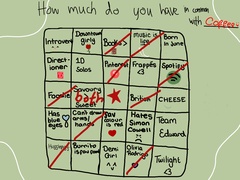 How much do you have in common
with Coffeee
Introvert
Downtown
girly
Books
music is
life
Born
in June
Direct-
ioner
1D
Solos
Pinterest
Frappés
Spotify
Foodie
Savoury
both
Sweet
British
CHEESE
Has
blue
eyes
Cant draw
hands
Fav
colour
is red
Hates
Simon
Cowell
Team
Edward
Burrito
is paw
Demi
Girl
Olivia
Rodrigo
Twilight